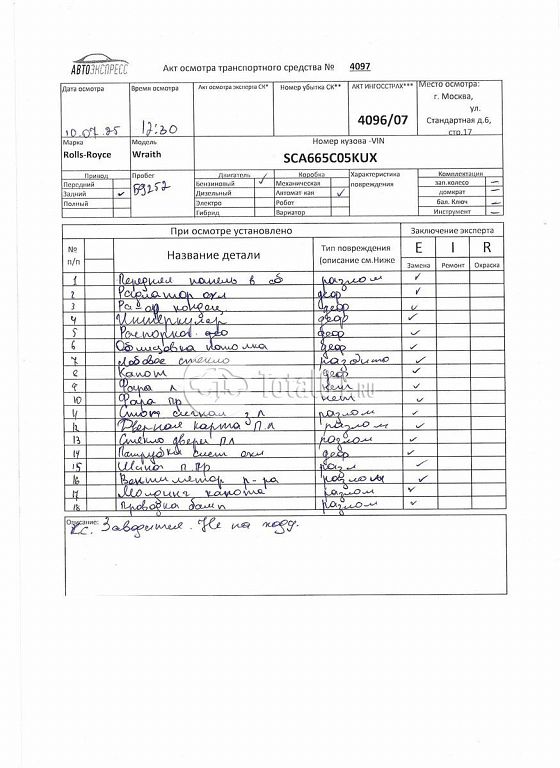 АВТОЭКСПРЕСС
Акт осмотра транспортного средства № 4097
Дата осмотра
10.07.25
Время осмотра
12:30
Акт осмотра эксперта СК*
Номер убытка СК**
АКТ ИНГОССТРАХ***
4096/07
Место осмотра:
г. Москва,
ул.
Стандартная д.6,
стр.17
Марка
Rolls-Royce
Модель
Wraith
Номер кузова -VIN
SCA665C05KUX
Привод
Передний
Задний ✓
Полный
Пробег
59252
Двигатель
Бензиновый ✓
Дизельный
Электро
Гибрид
Коробка
Механическая
Автомат кая ✓
Робот
Вариатор
Характеристика
повреждения
Комплектация
зап.колесо –
домкрат –
бал. Ключ –
Инструмент –
При осмотре установлено
Заключение эксперта
№
п/п
Название детали
Тип повреждения
(описание см.Ниже
E I R
Замена Ремонт Окраска
1 Передняя панель в сб разлом ✓
2 Радиатор охл деф ✓
3 Рад ор кондец деф ✓
4 Интеркулер деф ✓
5 деф ✓
6 Облицовка потолка деф ✓
7 Лобовое стекло разбито ✓
8 Капот деф ✓
9 Фара л нет ✓
10 Фара пр нет ✓
11 Стоп сигнал з л разлом ✓
12 Дверная карта П.Л разлом ✓
13 Стекло двери ПЛ разлом ✓
14 Патрубки сист охл деф ✓
15 Шина п пр разл ✓
16 Вентилятор р-ра разломы ✓
17 Молдинг капота разлом ✓
18 Проводка бамп разлом ✓
TotalCar.RU
Описание:
Заводится. Не на ходу.